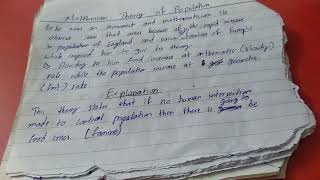 Malthusian Theory of Population
he was an economist and mathematician. He
observe case that arises because of the rapid increase
in population of England and
which inspired him to give his theory.
According to him food increase at arithmetic (slowly)
rate while the population increase at geometric
(fast) rate.
Explanation
This theory states that if no human intervention
made to control population then there is going to be
food crises. (famine)